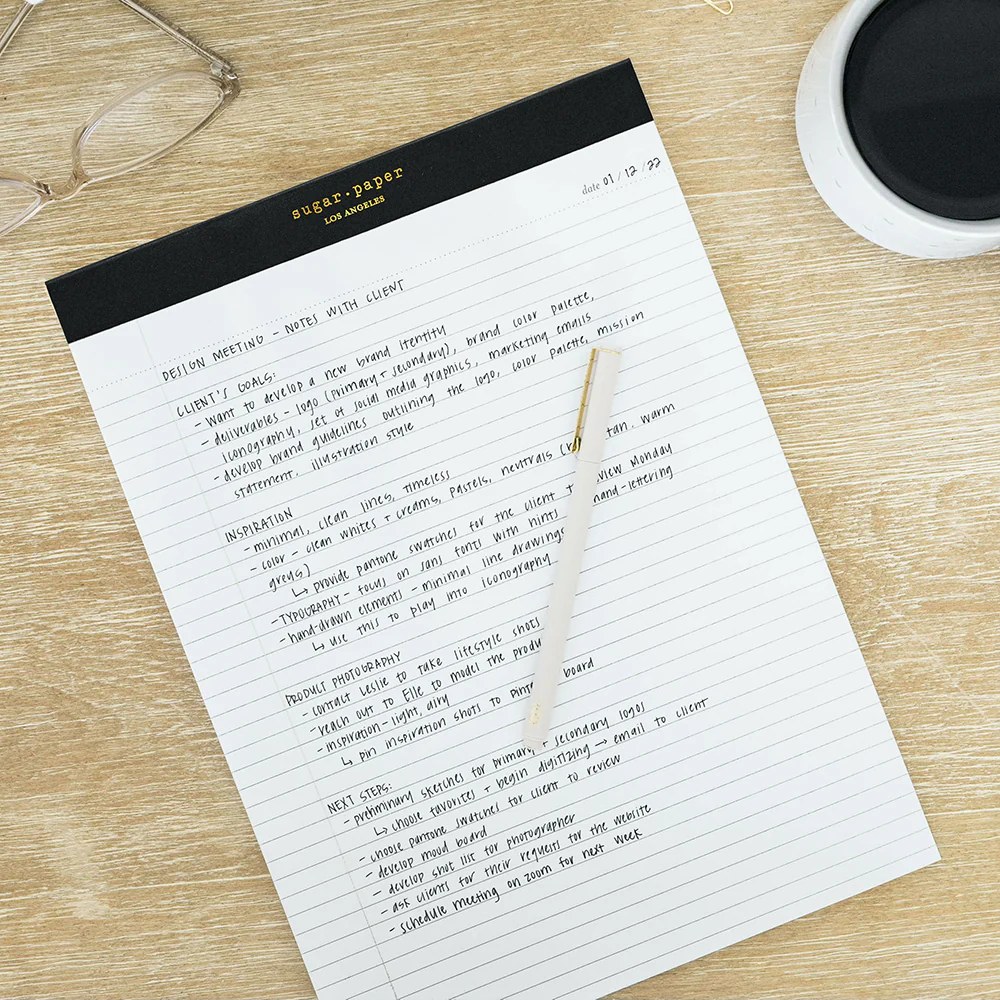 sugar·paper
LOS ANGELES
date 01 / 12 / 22
DESIGN MEETING - NOTES WITH CLIENT
CLIENT'S GOALS:
- want to develop a new brand identity
- deliverables - logo (primary + secondary), brand color palette,
iconography, set of social media graphics, marketing emails
- develop brand guidelines outlining the logo, color palette, mission
statement, illustration style
INSPIRATION
- minimal, clean lines, timeless
- color - clean whites + creams, pastels, neutrals tan, warm
greys)
↳ provide pantone swatches for the client Monday
- TYPOGRAPHY - focus on sans fonts with hints hand-lettering
- hand-drawn elements - minimal line drawings
↳ use this to play into iconography
PRODUCT PHOTOGRAPHY
- contact Leslie to take lifestyle shots
- reach out to Elle to model the
- inspiration - light, airy
↳ pin inspiration shots to board
NEXT STEPS:
- preliminary sketches for primary + secondary logos
↳ choose favorites + begin digitizing → email to client
- choose pantone swatches for client to review
- develop mood board
- develop shot list for photographer
- ask clients for their requests for the website
- schedule meeting on zoom for next week